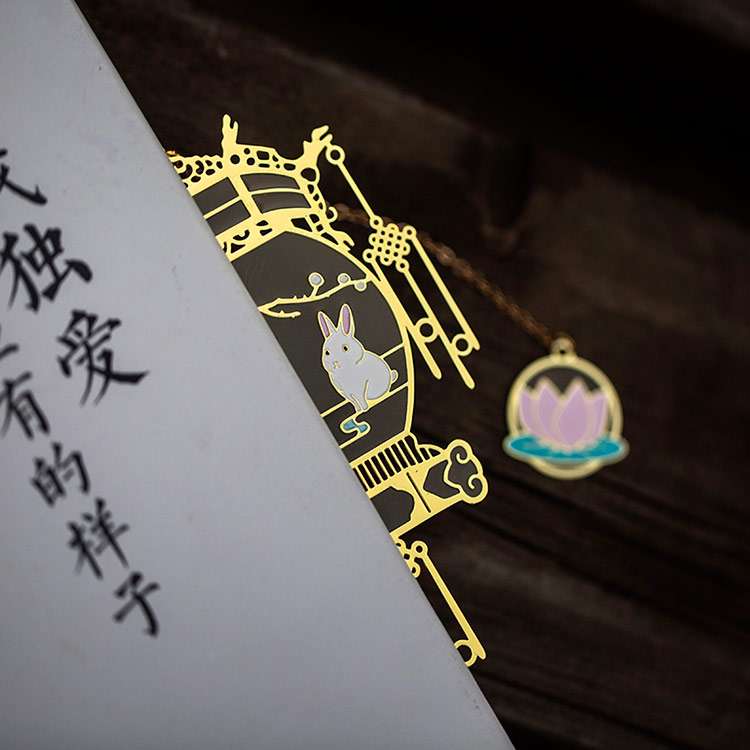 独爱
有的样子